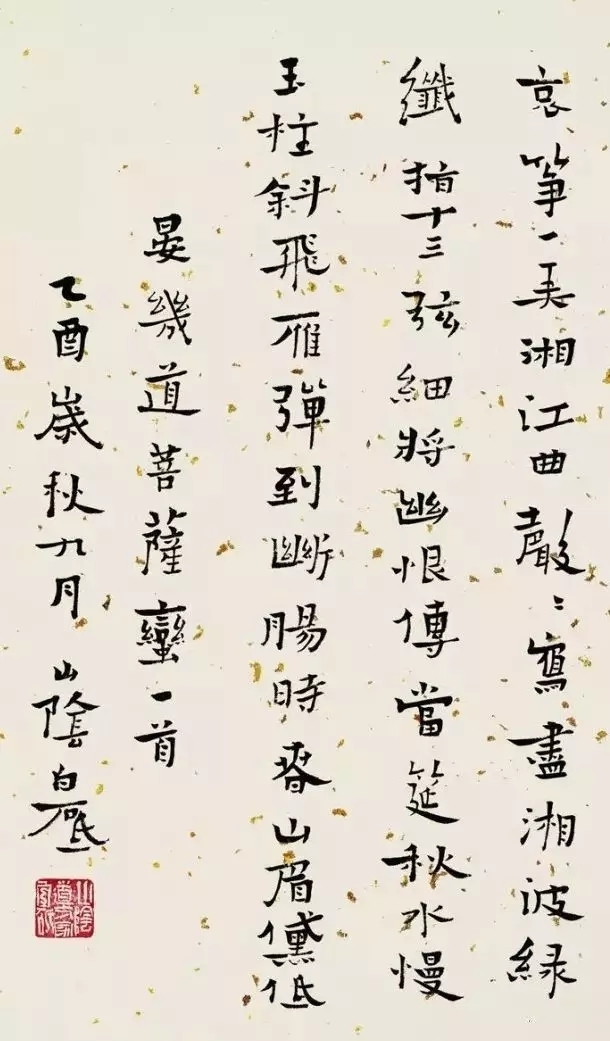 哀箏一弄湘江曲聲〻寫盡湘波緑
纖指十三弦細將幽恨傳當筵秋水慢
玉柱斜飛雁彈到斷腸時春山眉黛低
晏幾道菩薩蠻一首
乙酉歲秋九月山陰白砥
山陰